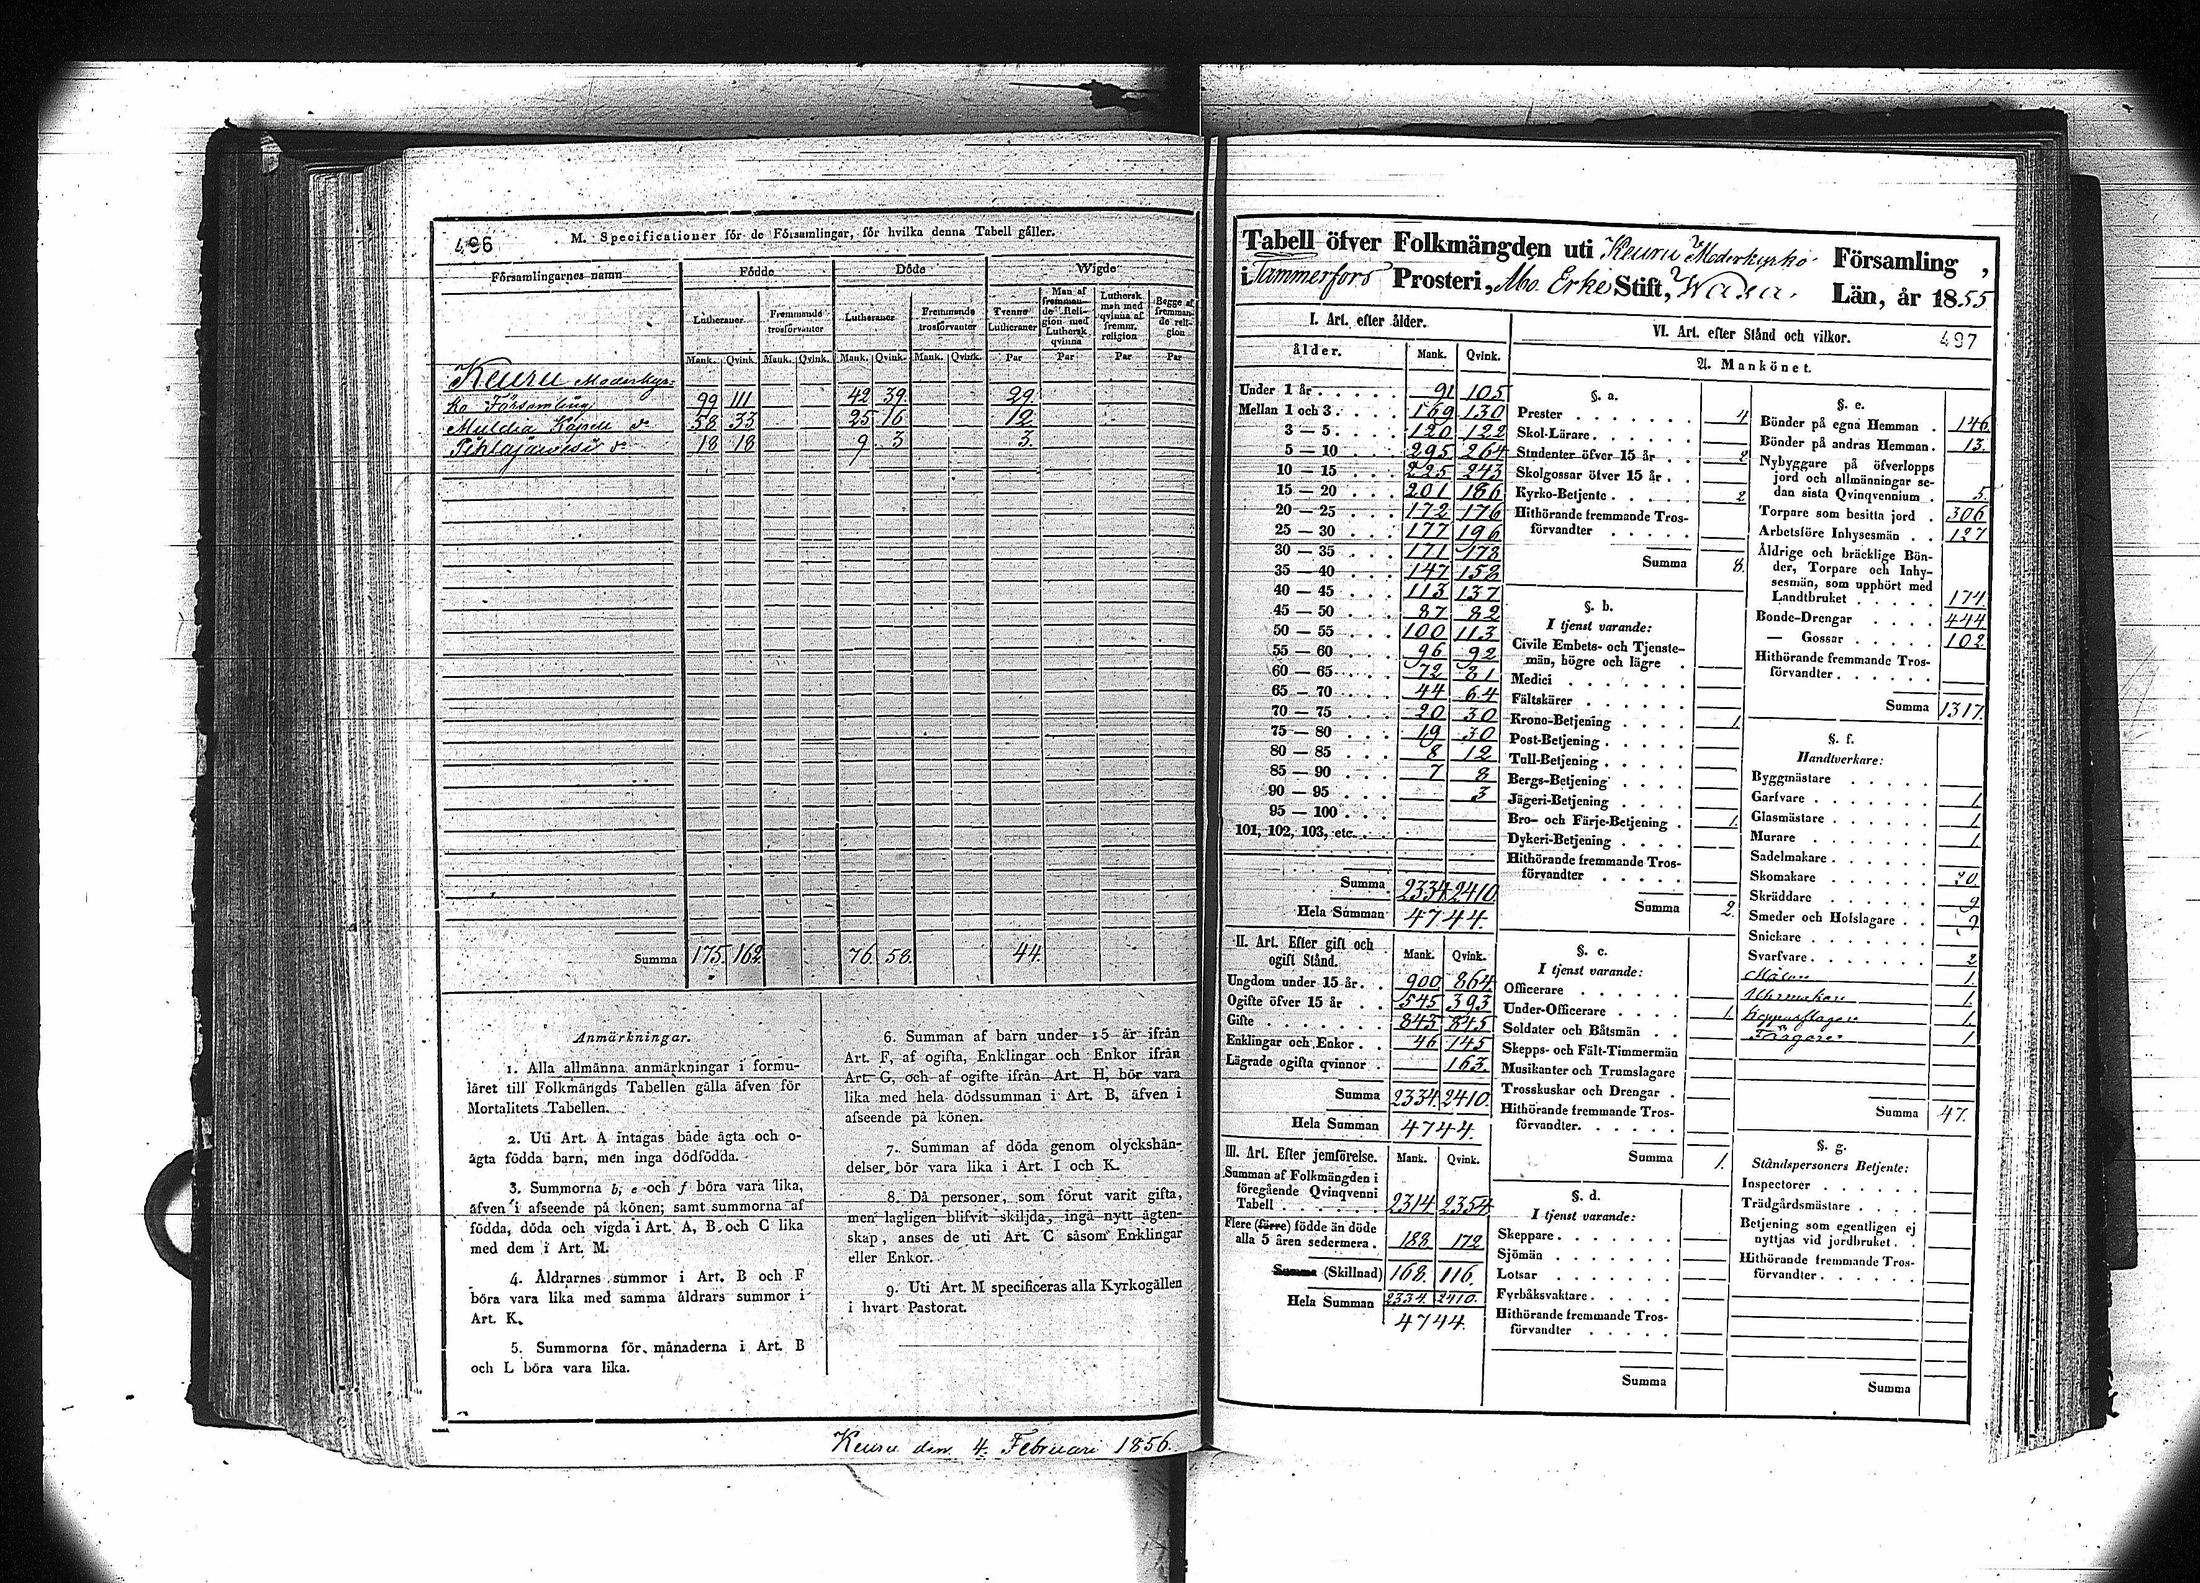 496
M. Specificationer för de Församlingar, för hvilka denna Tabell gäller.
Församlingarnes namn Födde Döde Wigde
Lutheraner Fremmande trosförvanter Lutheraner Fremmande trosförvanter Tvenne Lutheraner Man af fremmande Religion med Luthersk qvinna Luthersk man med qvinna af fremm. religion Begge af fremmande religion
Mank. Qvink. Mank. Qvink. Mank. Qvink. Mank. Qvink. Par Par Par Par
Keuru Moderkyr=
ko Församling 99 111 42 39 29
Multia Kapell d:o 58 33 25 16 12
Pihlajavesi d:o 18 18 9 3 3
Summa 175. 162. 76. 58. 44.
Anmärkningar.
1. Alla allmänna anmärkningar i formu-
läret till Folkmängds Tabellen gälla äfven för
Mortalitets Tabellen.
2. Uti Art. A intagas både ägta och o-
ägta födda barn, men inga dödfödda.
3. Summorna b, e och f böra vara lika,
äfven i afseende på könen; samt summorna af
födda, döda och vigda i Art. A, B och C lika
med dem i Art. M.
4. Åldrarnes summor i Art. B och F
böra vara lika med samma åldrars summor i
Art. K.
5. Summorna för månaderna i Art. B
och L böra vara lika.
6. Summan af barn under 15 år ifrån
Art. F, af ogifta, Enklingar och Enkor ifrån
Art. G, och af ogifte ifrån Art. H, bör vara
lika med hela dödssumman i Art. B, äfven i
afseende på könen.
7. Summan af döda genom olyckshän-
delser bör vara lika i Art. I och K.
8. Då personer, som förut varit gifta,
men lagligen blifvit skiljda, ingå nytt ägten-
skap, anses de uti Art. C såsom Enklingar
eller Enkor.
9. Uti Art. M specificeras alla Kyrkogällen
i hvart Pastorat.
Keuru den 4. Februari 1856.
Tabell öfver Folkmängden uti Keuru Moderkyrko Församling,
i Tammerfors Prosteri, Åbo Erke Stift, Wasa Län, år 1855
497
I. Art. efter ålder.
ålder. Mank. Qvink.
Under 1 år 91 105
Mellan 1 och 3 169 130
3 — 5 120 122
5 — 10 295 264
10 — 15 225 243
15 — 20 201 186
20 — 25 172 176
25 — 30 177 196
30 — 35 171 178
35 — 40 147 158
40 — 45 113 137
45 — 50 87 82
50 — 55 100 113
55 — 60 96 92
60 — 65 72 81
65 — 70 44 64
70 — 75 20 30
75 — 80 19 30
80 — 85 8 12
85 — 90 7 8
90 — 95 3
95 — 100
101, 102, 103, etc.
Summa 2334. 2410.
Hela Summan 4744.
II. Art. Efter gift och
ogift Stånd. Mank. Qvink.
Ungdom under 15 år 900 864
Ogifte öfver 15 år 545 393
Gifte 843 845
Enklingar och Enkor 46 145
Lägrade ogifta qvinnor 163.
Summa 2334. 2410.
Hela Summan 4744.
III. Art. Efter jemförelse. Mank. Qvink.
Summan af Folkmängden i
föregående Qvinqvenni
Tabell 2314 2354
Flere (färre) födde än döde
alla 5 åren sedermera 188. 172
Summa (Skillnad) 168. 116.
Hela Summan 2334. 2410.
4744.
VI. Art. efter Stånd och vilkor.
A. Mankönet.
§. a.
Prester 4
Skol-Lärare
Studenter öfver 15 år 2
Skolgossar öfver 15 år
Kyrko-Betjente 2
Hithörande fremmande Tros-
förvandter
Summa 8.
§. b.
I tjenst varande:
Civile Embets- och Tjenste-
män, högre och lägre
Medici
Fältskärer
Krono-Betjening 1.
Post-Betjening
Tull-Betjening
Bergs-Betjening
Jägeri-Betjening
Bro- och Färje-Betjening 1.
Dykeri-Betjening
Hithörande fremmande Tros-
förvandter
Summa 2.
§. c.
I tjenst varande:
Officerare
Under-Officerare 1.
Soldater och Båtsmän
Skepps- och Fält-Timmermän
Musikanter och Trumslagare
Trosskuskar och Drengar
Hithörande fremmande Tros-
förvandter.
Summa 1.
§. d.
I tjenst varande:
Skeppare
Sjömän
Lotsar
Fyrbåksvaktare
Hithörande fremmande Tros-
förvandter
Summa
§. e.
Bönder på egna Hemman 146
Bönder på andras Hemman 13.
Nybyggare på öfverlopps
jord och allmänningar se-
dan sista Qvinqvennium 5.
Torpare som besitta jord 306
Arbetsföre Inhysesmän 127
Åldrige och bräcklige Bön-
der, Torpare och Inhy-
sesmän, som upphört med
Landtbruket 174
Bonde-Drengar 444
— Gossar 102.
Hithörande fremmande Tros-
förvandter
Summa 1317.
§. f.
Handtverkare:
Byggmästare
Garfvare 1.
Glasmästare 1.
Murare 1.
Sadelmakare
Skomakare 20
Skräddare 9
Smeder och Hofslagare 9
Snickare
Svarfvare 2
Målare 1.
Uhrmakare 1.
Kopparslagare 1.
Färgare 1
Summa 47.
§. g.
Ståndspersoners Betjente:
Inspectorer
Trädgårdsmästare
Betjening som egentligen ej
nyttjas vid jordbruket
Hithörande fremmande Tros-
förvandter
Summa